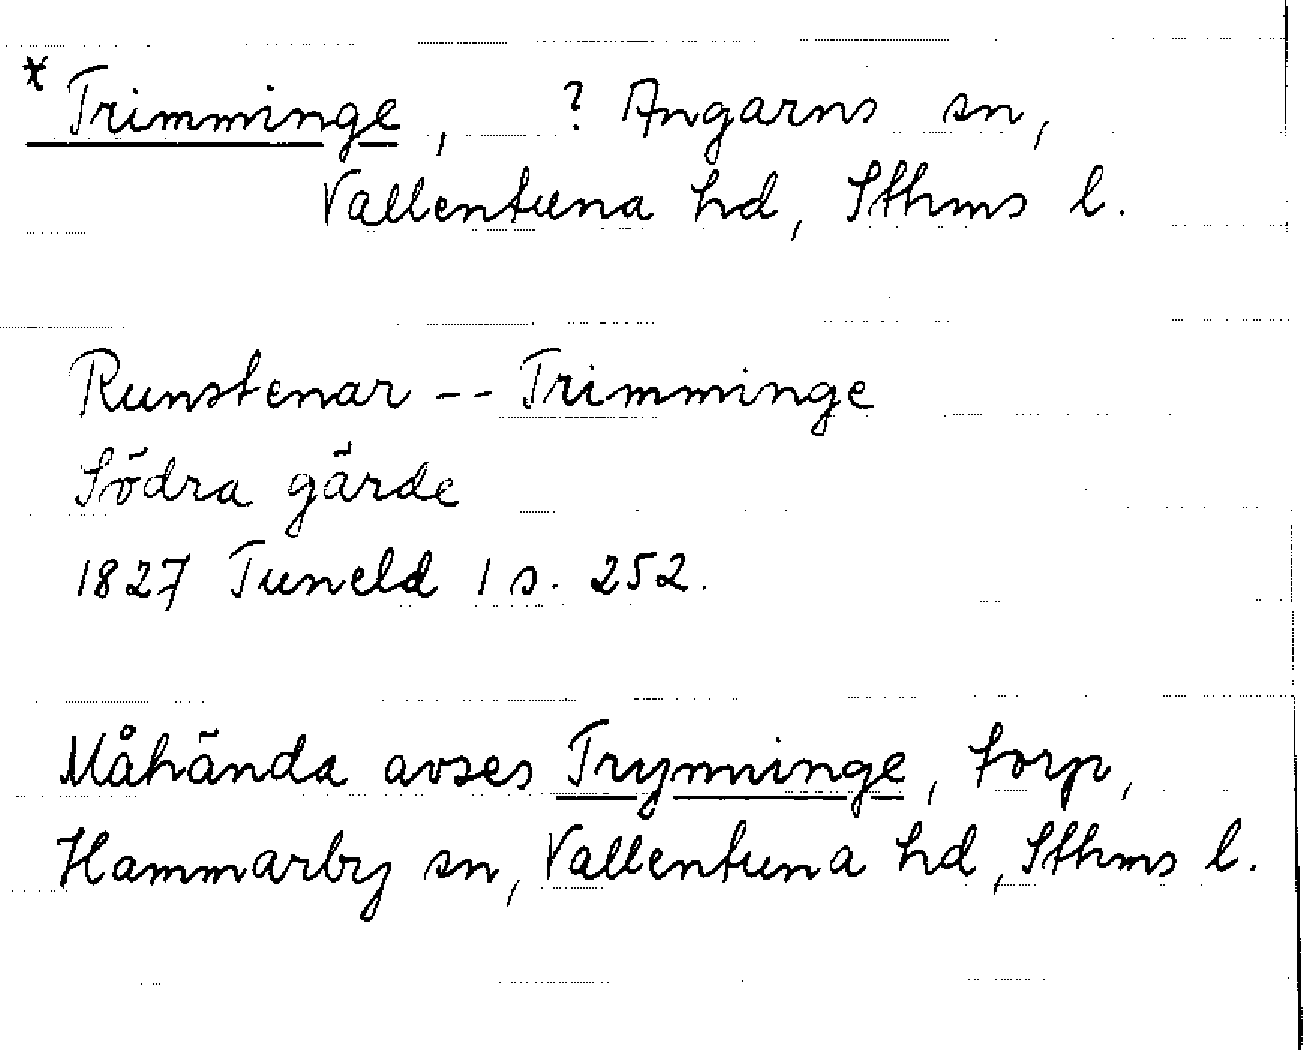 * Trimminge, ? Angarns sn,
Vallentuna hd, Sthms l.
Runstenar -- Trimminge
Södra gärde
1827 Tuneld 1 s. 252.
Måhända avses Trymninge, torp,
Hammarby sn, Vallentuna hd, Sthms l.